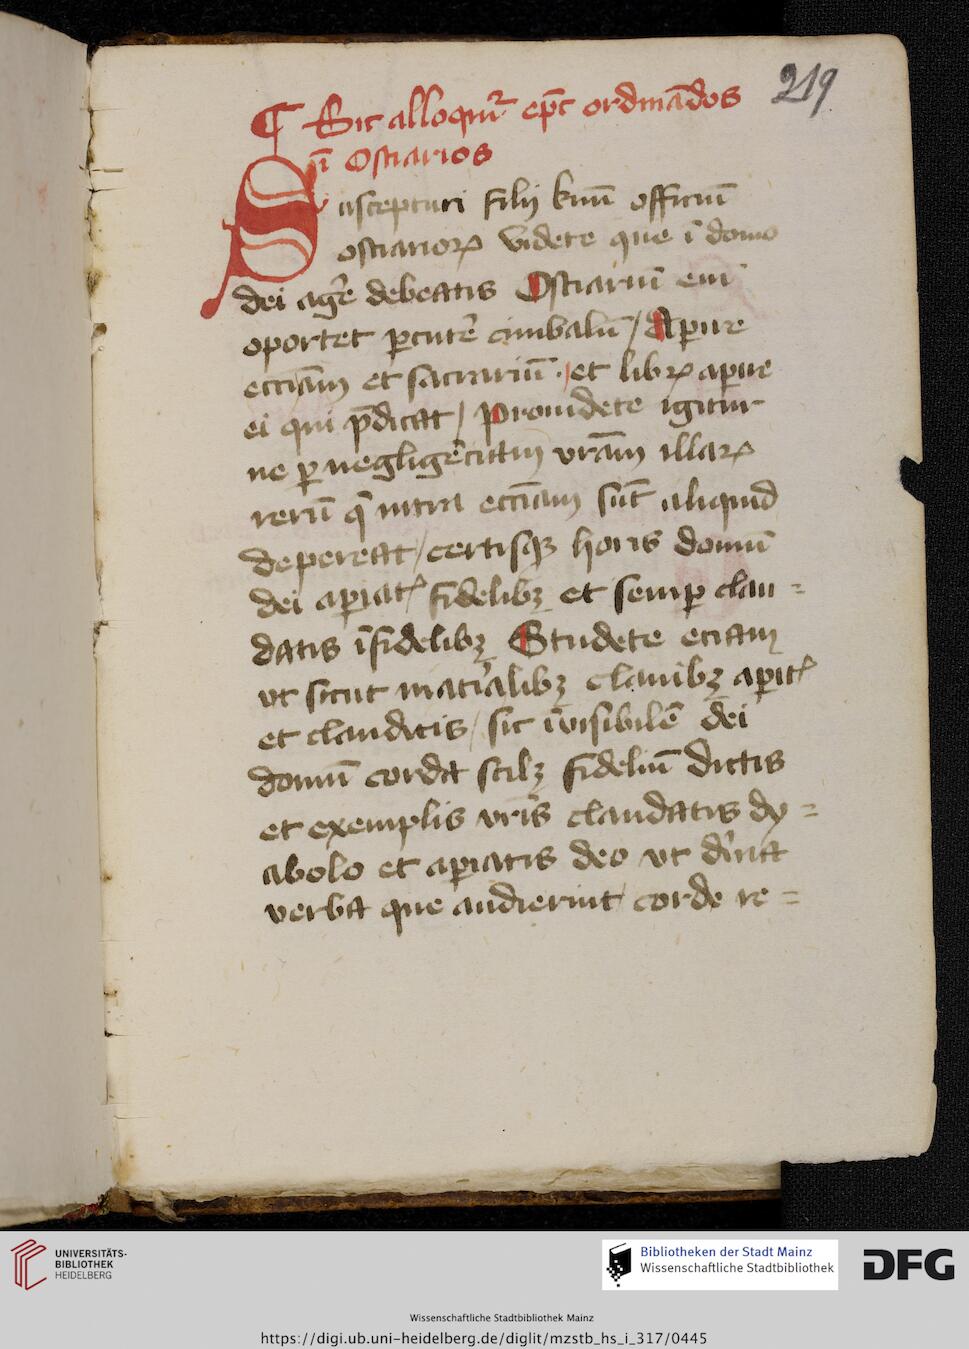 219
¶ Sic alloquit᷑ ep̄c ordinādos
ī Ostiarios
Suscepturi filij k̄mi officiū
ostiarioꝝ videte que ī domo
dei ag̃e debeatis Ostiariū em̄
oportet ꝑcut̃e cimbalū / Aperire
eccīam et sacrariū / et librꝝ aperire
ei qui p̄dicat / Prouidete igitur
ne ꝑ neglige᷑ciam vrām illaꝝ
rerū q̄ intra eccīam sūt aliquid
depereat / certisqꝫ horis domū
dei aperiat᷑ fidelibꝫ et semꝑ clau =
datis īfidelibꝫ Studete eciam
vt sicut mat̃ialibꝫ clauibꝫ aperit᷑
et clauditis / sic īuisibilē dei
domū corda scilꝫ fideliū dictis
et exemplis vrīs claudatis dy =
abolo et aperiatis deo vt diuīa
verba que audierint corde re =
UNIVERSITÄTS-
BIBLIOTHEK
HEIDELBERG
Bibliotheken der Stadt Mainz
Wissenschaftliche Stadtbibliothek
DFG
Wissenschaftliche Stadtbibliothek Mainz
https://digi.ub.uni-heidelberg.de/diglit/mzstb_hs_i_317/0445